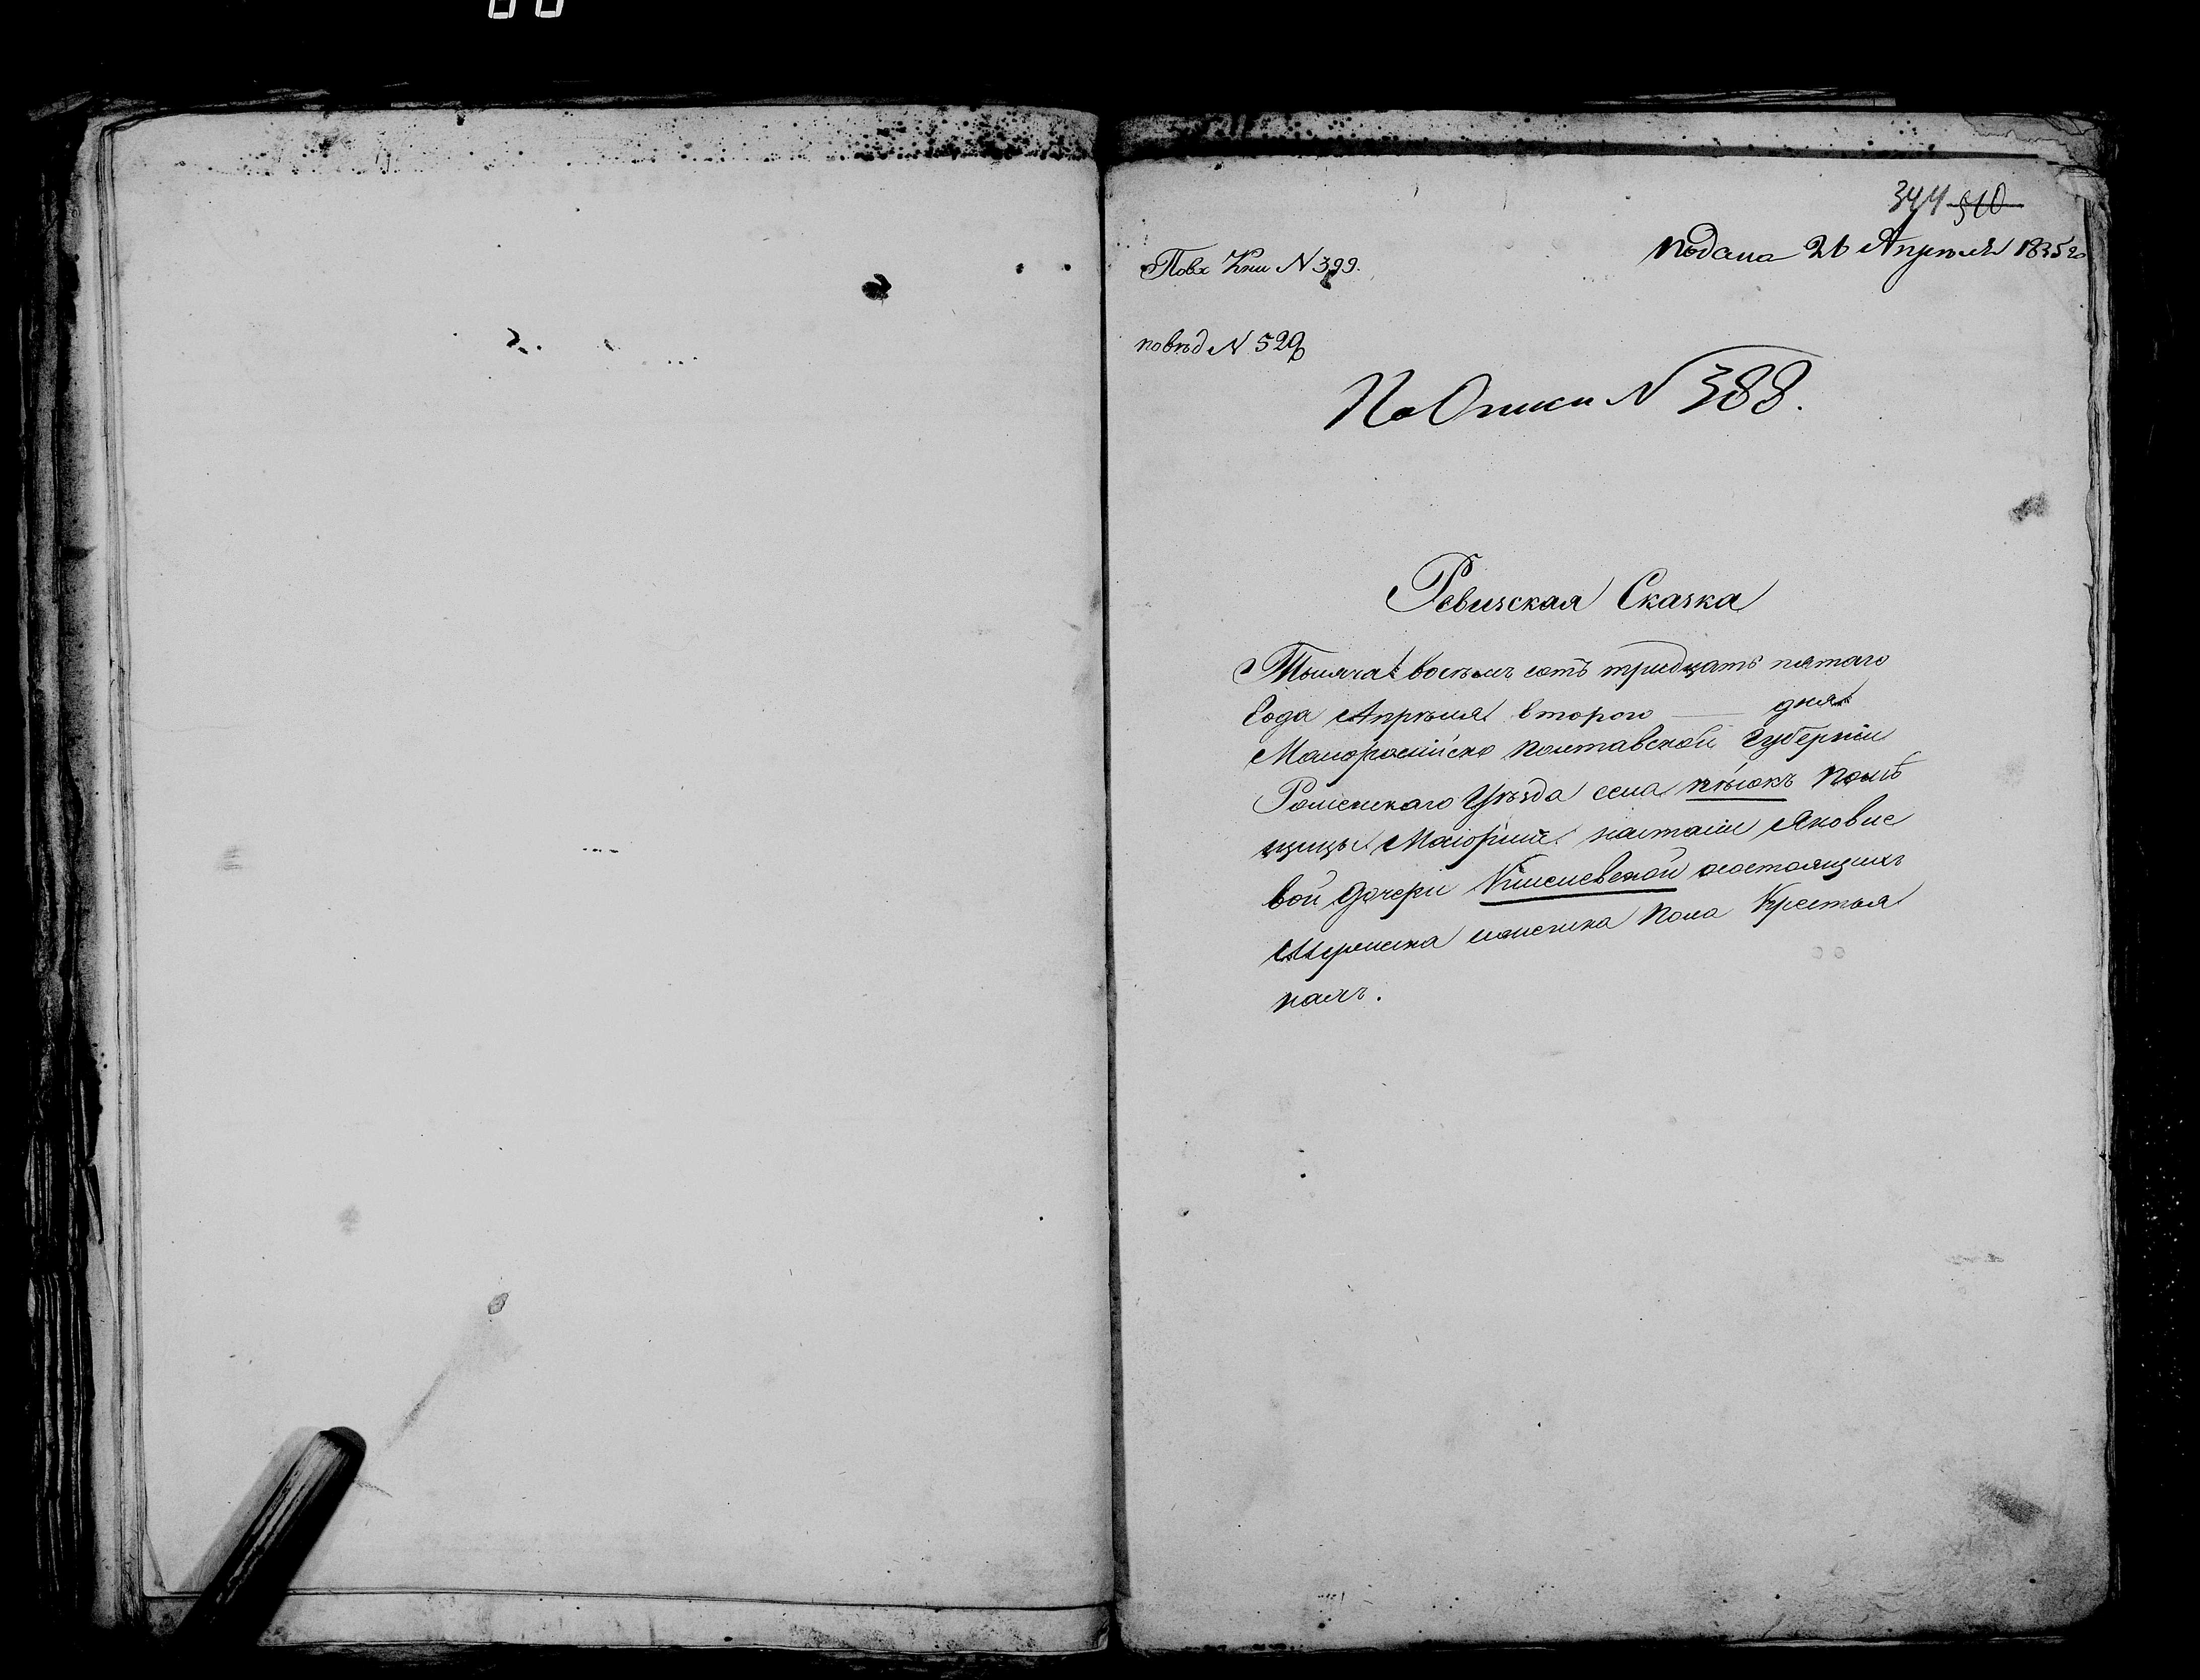 344 510
Подана 26 Апреля 1835 го
По вх Кни N 399.
по вѣд N 529
По Описи N 388.
Ревизская Сказка
Тысяча восемь сотъ тридцать пятаго
Года Апрѣля второго — дня
Малоросийско полтавской Губерніи
Роменскаго Уѣзда села полѣ
щицы Маіорши настасіи Яковле
вой дочери состоящихъ
Мужеска иженска пола Крестья
намъ.